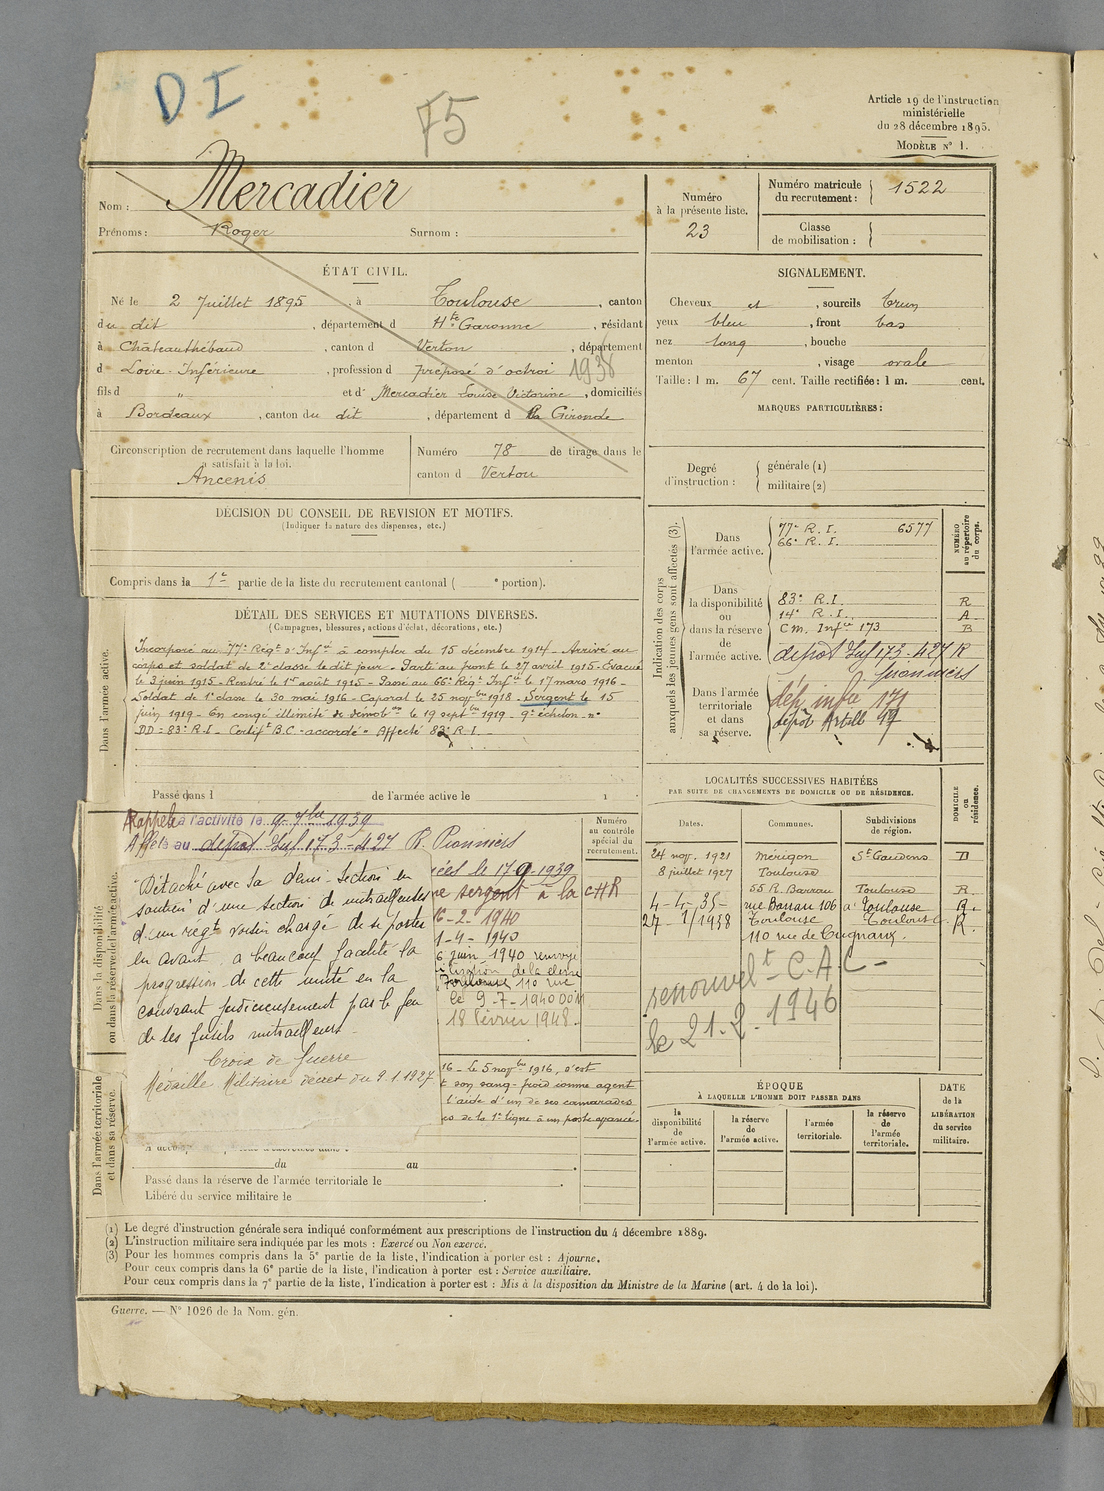 D I
F5
Article 19 de l'instruction
ministérielle
du 28 décembre 1895.
MODÈLE N° 1.
Nom : Mercadier
Prénoms : Roger Surnom :
Numéro
à la présente liste.
23
Numéro matricule
du recrutement : 1522
Classe
de mobilisation :
ÉTAT CIVIL.
Né le 2 Juillet 1895, à Toulouse, canton
du dit, département d Hte Garonne, résidant
à Châteauthébaud, canton d Verton, département
d Loire-Inférieure, profession d préposé d'octroi 1938
fils d " et d' Mercadier Louise Victorine, domiciliés
à Bordeaux, canton du dit, département d la Gironde
Circonscription de recrutement dans laquelle l'homme
a satisfait à la loi.
Ancenis
Numéro 78 de tirage dans le
canton d Vertou
SIGNALEMENT.
Cheveux et, sourcils brun
yeux bleu, front bas
nez long, bouche
menton, visage ovale
Taille : 1 m. 67 cent. Taille rectifiée : 1 m. cent.
MARQUES PARTICULIÈRES :
Degré
d'instruction :
générale (1)
militaire (2)
DÉCISION DU CONSEIL DE REVISION ET MOTIFS.
(Indiquer la nature des dispenses, etc.)
Compris dans la 1re partie de la liste du recrutement cantonal ( e portion).
DÉTAIL DES SERVICES ET MUTATIONS DIVERSES.
(Campagnes, blessures, actions d'éclat, décorations, etc.)
Dans l'armée active.
Incorporé au 77e Régt d'Infie à compter du 15 décembre 1914 - Arrivé au
corps et soldat de 2e classe le dit jour - Parti au front le 27 avril 1915 - Évacué
le 3 juin 1915 - Rentré le 1er août 1915 - Passé au 66e Régt Infie le 17 mars 1916 -
Soldat de 1e classe le 30 mai 1916 - Caporal le 25 novbre 1918 - Sergent le 15
juin 1919 - En congé illimité de démobon le 19 septbre 1919 - 9e échelon - n°
DD : 83e R.I - Certift B.C. "accordé" Affecté 83e R.I -
Passé dans l de l'armée active le 1
Indication des corps
auxquels les jeunes gens sont affectés (3).
NUMÉRO
au répertoire
du corps.
Dans
l'armée active.
77e R. I. 6577
66e R. I.
Dans
la disponibilité
ou
dans la réserve
de
l'armée active.
83e R.I. R
14e R.I. A
Cm. Infie 173 B
depot Inf 173-427 R
pionniers
Dans l'armée
territoriale
et dans
sa réserve.
dép. infie 171
dépôt Artill 17
LOCALITÉS SUCCESSIVES HABITÉES
PAR SUITE DE CHANGEMENTS DE DOMICILE OU DE RÉSIDENCE.
Dates. Communes. Subdivisions
de région.
DOMICILE
ou
résidence.
24 nov. 1921 Mérigon St Gaudens D
8 juillet 1927 Toulouse
55 R. Barrau Toulouse R.
4-4-35- rue Barrau 106 a Toulouse R.
27-1/1938 Toulouse Toulouse. R.
110 rue de Cugnaux.
renouvelt C.A.C -
le 21.2.1946
Dans la disponibilité
ou dans la réserve de l'armée active.
Numéro
au contrôle
spécial du
recrutement.
Rappelé à l'activité le 9 7bre 1939
Affecté au depot Inf 173-427 R. Pionniers
iés le 17 9-1939
sergent à la CHR
16-2-1940
1-4-1940
6 juin 1940 renvoyé
Toulouse 110 rue
le 9-7-1940
18 Février 1948.
Détaché avec sa demi-section en
soutien d'une section de mitrailleuses
d'un regt voisin chargé de se porter
en avant, a beaucoup facilité la
progression de cette unité en la
couvrant judicieusement par le feu
de ses fusils mitrailleurs
Croix de Guerre
Médaille Militaire décret du 9.1.1927
16 - le 5 novbre 1916, s'est
son sang-froid comme agent
l'aide d'un de ses camarades
de la 1e ligne à un poste avancé.
Dans l'armée territoriale
et dans sa réserve.
du au
Passé dans la réserve de l'armée territoriale le
Libéré du service militaire le
ÉPOQUE
À LAQUELLE L'HOMME DOIT PASSER DANS
la
disponibilité
de
l'armée active.
la réserve
de
l'armée active.
l'armée
territoriale.
la réserve
de
l'armée
territoriale.
DATE
de la
LIBÉRATION
du service
militaire.
(1) Le degré d'instruction générale sera indiqué conformément aux prescriptions de l'instruction du 4 décembre 1889.
(2) L'instruction militaire sera indiquée par les mots : Exercé ou Non exercé.
(3) Pour les hommes compris dans la 5e partie de la liste, l'indication à porter est : Ajourné.
Pour ceux compris dans la 6e partie de la liste, l'indication à porter est : Service auxiliaire.
Pour ceux compris dans la 7e partie de la liste, l'indication à porter est : Mis à la disposition du Ministre de la Marine (art. 4 de la loi).
Guerre. — N° 1026 de la Nom. gén.